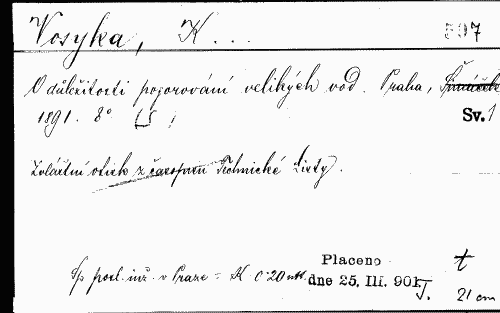 Vosyka, K... 597
O důležitosti pozorování velikých vod. Praha, Šimáček
1891. 8° Sv. 1
Zvláštní otisk z časopisu Technické Listy.
Placeno t
Sp. posl. inž. v Praze = K 0·20 dne 25. III. 901 T.
21 cm